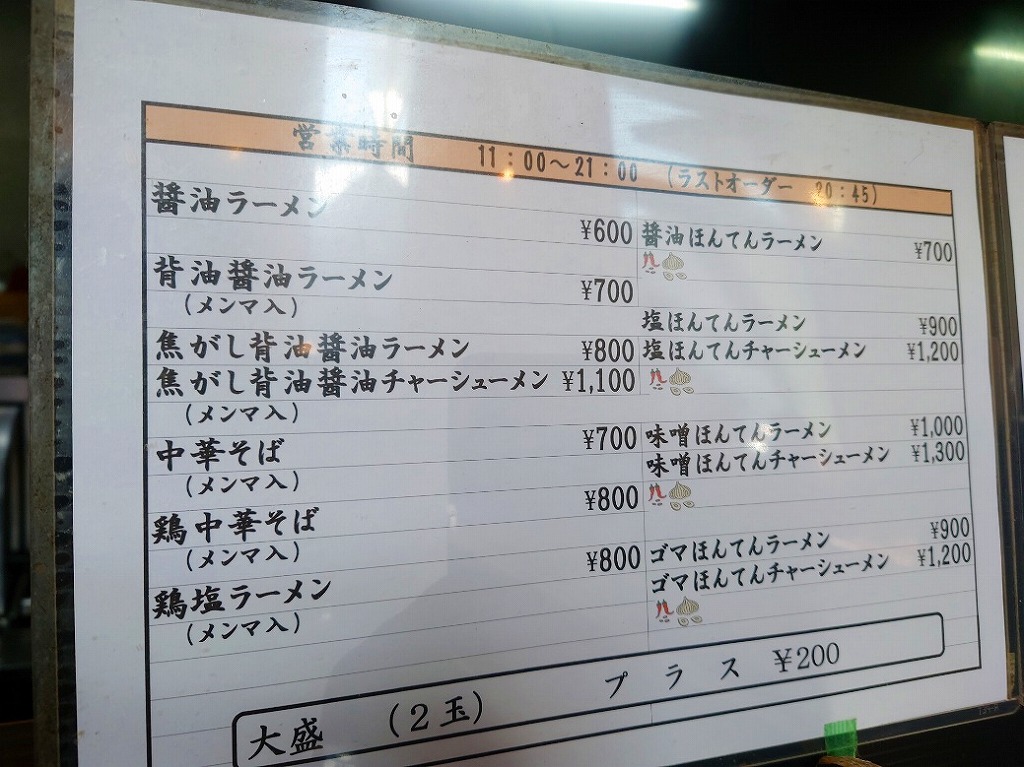 営業時間 11:00～21:00 (ラストオーダー 20:45)
醤油ラーメン ¥600
背油醤油ラーメン ¥700
(メンマ入)
焦がし背油醤油ラーメン ¥800
焦がし背油醤油チャーシューメン ¥1,100
(メンマ入)
中華そば ¥700
(メンマ入)
鶏中華そば ¥800
(メンマ入)
鶏塩ラーメン ¥800
(メンマ入)
醤油ほんてんラーメン ¥700
塩ほんてんラーメン ¥900
塩ほんてんチャーシューメン ¥1,200
味噌ほんてんラーメン ¥1,000
味噌ほんてんチャーシューメン ¥1,300
ゴマほんてんラーメン ¥900
ゴマほんてんチャーシューメン ¥1,200
大盛 (2玉) プラス ¥200